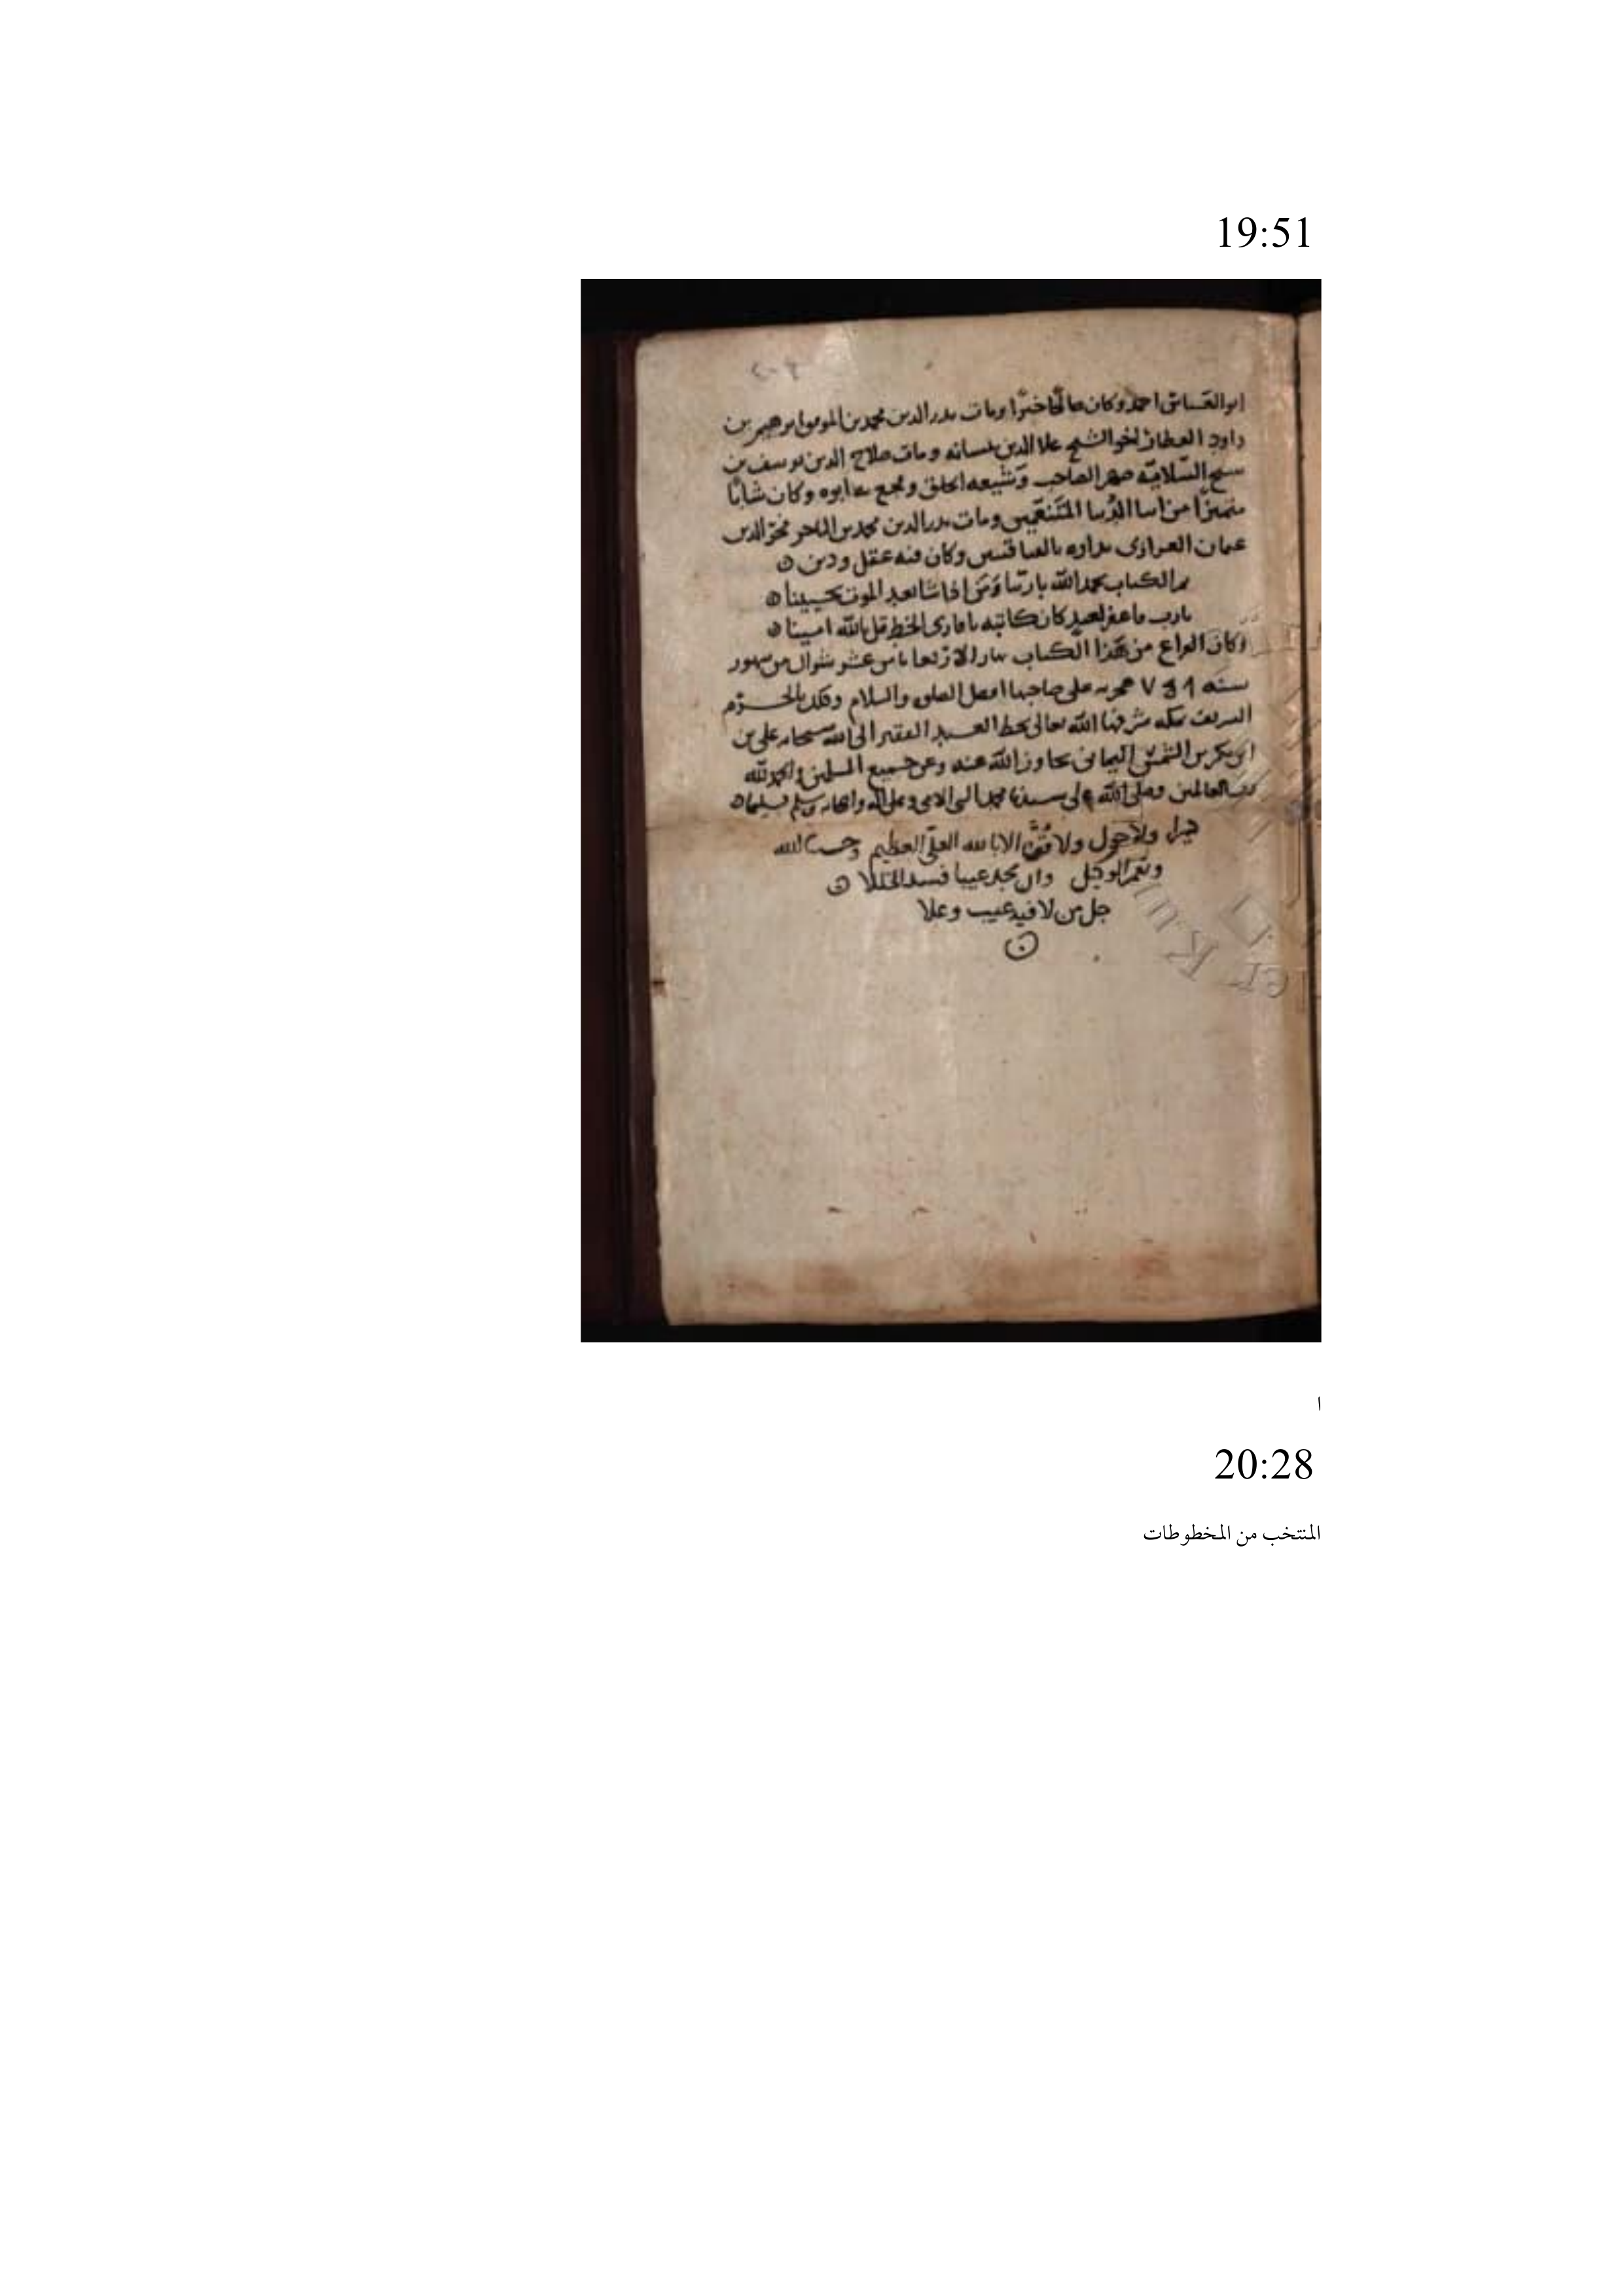 19:51
ابو العباس احمد وكان صالحا خيرا ومات بدر الدين محمد بن ابرهيم بن
داود العطار اخو الشيخ علا الدين ببستانه ومات صلاح الدين يوسف بن
شيخ السلاميه صهر الصاحب وشيعه الخلق وفجع به ابوه وكان شابا
متميزا من ابنا الدنيا المتنعمين ومات بدر الدين محمد بن فخر الدين
عثمان بداره وكان فيه عقل ودين
تم الكتاب بحمد الله باريـنا ومن اذا شا بعد الموت يحيينا
يارب فاغفر لعبد كان كاتبه يا قاري الخط قل بالله امينا
وكان الفراغ من هذا الكتاب نهار الاربعا ثامن عشر شوال من شهور
سنه هجريه على صاحبها افضل الصلوه والسلام وذلك بالحرم
الشريف بمكه شرفها الله تعالى بخط العبد الفقير الى الله سبحانه على بن
ابى بكر بن اليمانى تجاوز الله عنه وعن جميع المسلمين والحمد لله
رب العالمين وصلى الله على سيدنا محمد النبى الامى وعلى اله واصحابه وسلم تسليما
ولا حول ولا قوه الا بالله العلى العظيم وحسبنا الله
ونعم الوكيل وان تجد عيبا فسد الخللا
جل من لا فيه عيب وعلا
ا
20:28
المنتخب من المخطوطات